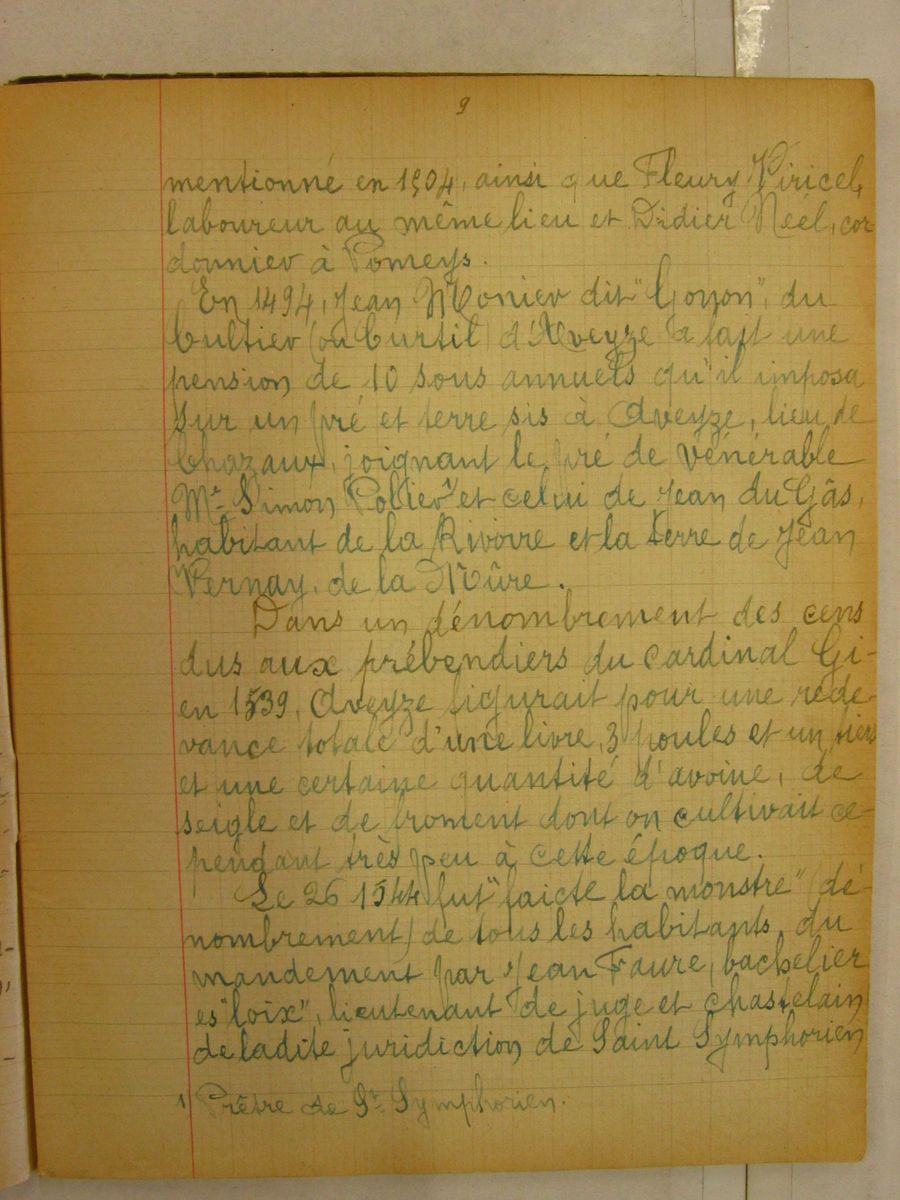 9
mentionné en 1504, ainsi que Fleury Viricel,
laboureur au même lieu et Didier Néel, cor
donnier à Pomeys.
En 1494, Jean Monier dit "Goyon", du
Cultier (ou Curtil) d'Aveyze a fait une
pension de 10 sous annuels qu'il imposa
sur un pré et terre sis à Aveyze, lieu de
Chazaux, joignant le pré de vénérable
Mr Simon Pollier¹ et celui de Jean du Gâs,
habitant de la Rivoire et la terre de Jean
Vernay, de la Mûre.
Dans un dénombrement des cens
dus aux prébendiers du cardinal Gi-
en 1539, Aveyze figurait pour une rede-
vance totale d'une livre, 3 poules et un tiers
et une certaine quantité d'avoine, de
seigle et de froment dont on cultivait ce-
pendant très peu à cette époque.
Le 26 1544 fut "faicte la monstre" (dé-
nombrement) de tous les habitants du
mandement par Jean Faure, bachelier
es "loix", lieutenant de juge et chastelain
de ladite juridiction de Saint Symphorien
1 Prêtre de St Symphorien.